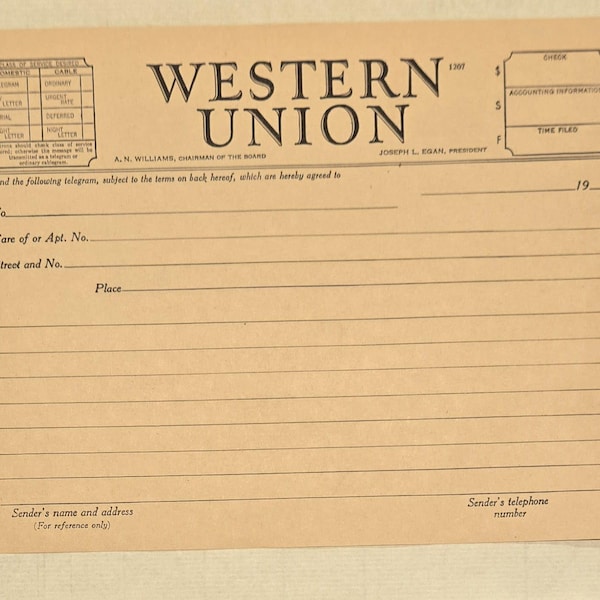 CLASS OF SERVICE DESIRED
DOMESTIC CABLE
ORDINARY
LETTER URGENT RATE
DEFERRED
LETTER NIGHT LETTER
should check class of service
otherwise the message will be
transmitted as a telegram or
ordinary cablegram.
WESTERN UNION
1207
A. N. WILLIAMS, CHAIRMAN OF THE BOARD
JOSEPH L. EGAN, PRESIDENT
$
S
F
CHECK
ACCOUNTING INFORMATION
TIME FILED
the following telegram, subject to the terms on back hereof, which are hereby agreed to
19
of or Apt. No.
and No.
Place
Sender's name and address
(For reference only)
Sender's telephone
number